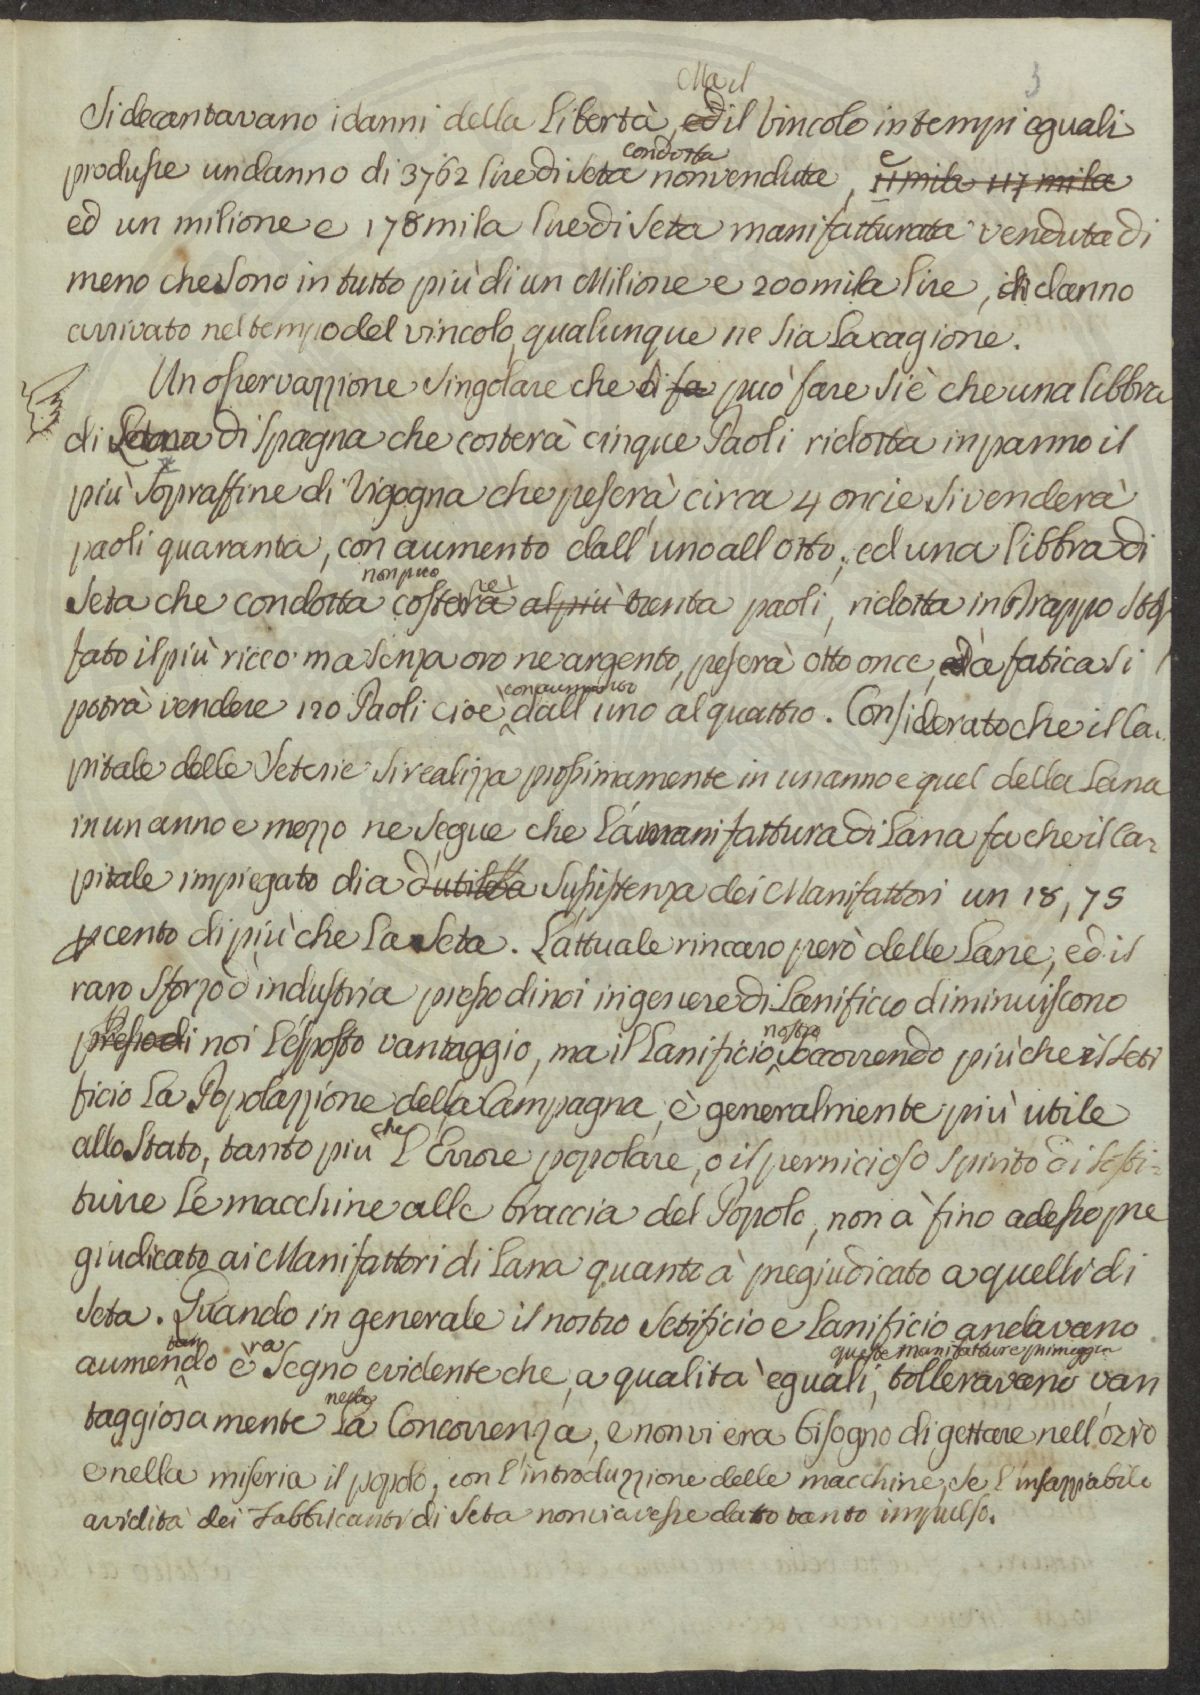 3
Ma il
Si decantavano i danni della Libertà, ed il vincolo in tempi eguali
condotta
produsse un danno di 3762 lire di Seta non venduta, e 11 mila 117 mila
ed un milione e 178 mila lire di Seta manifatturata venduta di
meno che Sono in tutto più di un Milione e 200 mila lire, di danno
arrivato nel tempo del vincolo, qualunque ne Sia La cagione.
Un osservazzione Singolare che si fa può fare Si è che una libbra
di Lana di Spagna che costerà cinque Paoli ridotta in panno il
più Sopraffine di Vigogna che peserà circa 4 oncie Si venderà
paoli quaranta, con aumento dall'uno all Otto; ed una libbra di
non può
Seta che condotta costerà al più trenta paoli, ridotta in Drappo Stof
fato il più ricco ma Senza oro ne argento, peserà otto once, ed a fatica Si
con aumento
potrà vendere 120 Paoli cioè dall'uno al quattro. Considerato che il Ca-
pitale delle Seterie Si realizza prossimamente in un anno e quel della Lana
in un anno e mezzo ne Segue che La manifattura di Lana fa che il Ca-
pitale impiegato dia d'utilità Sussistenza dei Manifattori un 18, 75
p cento di più che La Seta. L'attuale rincaro però delle Lane, ed il
raro Sforzo d'industria presso di noi in genere di Lanificio diminuiscono
presso di noi L'esposto vantaggio, ma il Lanificio
nostro
soccorrendo più che il Seti
ficio La Popolazzione della Campagna, è generalmente più utile
che
allo Stato, tanto più L'Errore popolare, o il pernicioso Spirito di Sosti-
tuire Le macchine alle braccia del Popolo, non à fino adesso pre
giudicato ai Manifattori di Lana quanto à pregiudicato a quelli di
Seta. Quando in generale il nostro Setificio e Lanificio andavano
tan ra queste manifatture primeggia
aumendo è Segno evidente che, a qualità eguali, tolleravano van
nella
taggiosamente La Concorrenza, e non vi era bisogno di gettare nell'ozio
e nella miseria il popolo, con l'introduzzione delle macchine, Se l'insaziabile
avidità dei Fabbricanti di Seta non vi avesse dato tanto impulso.